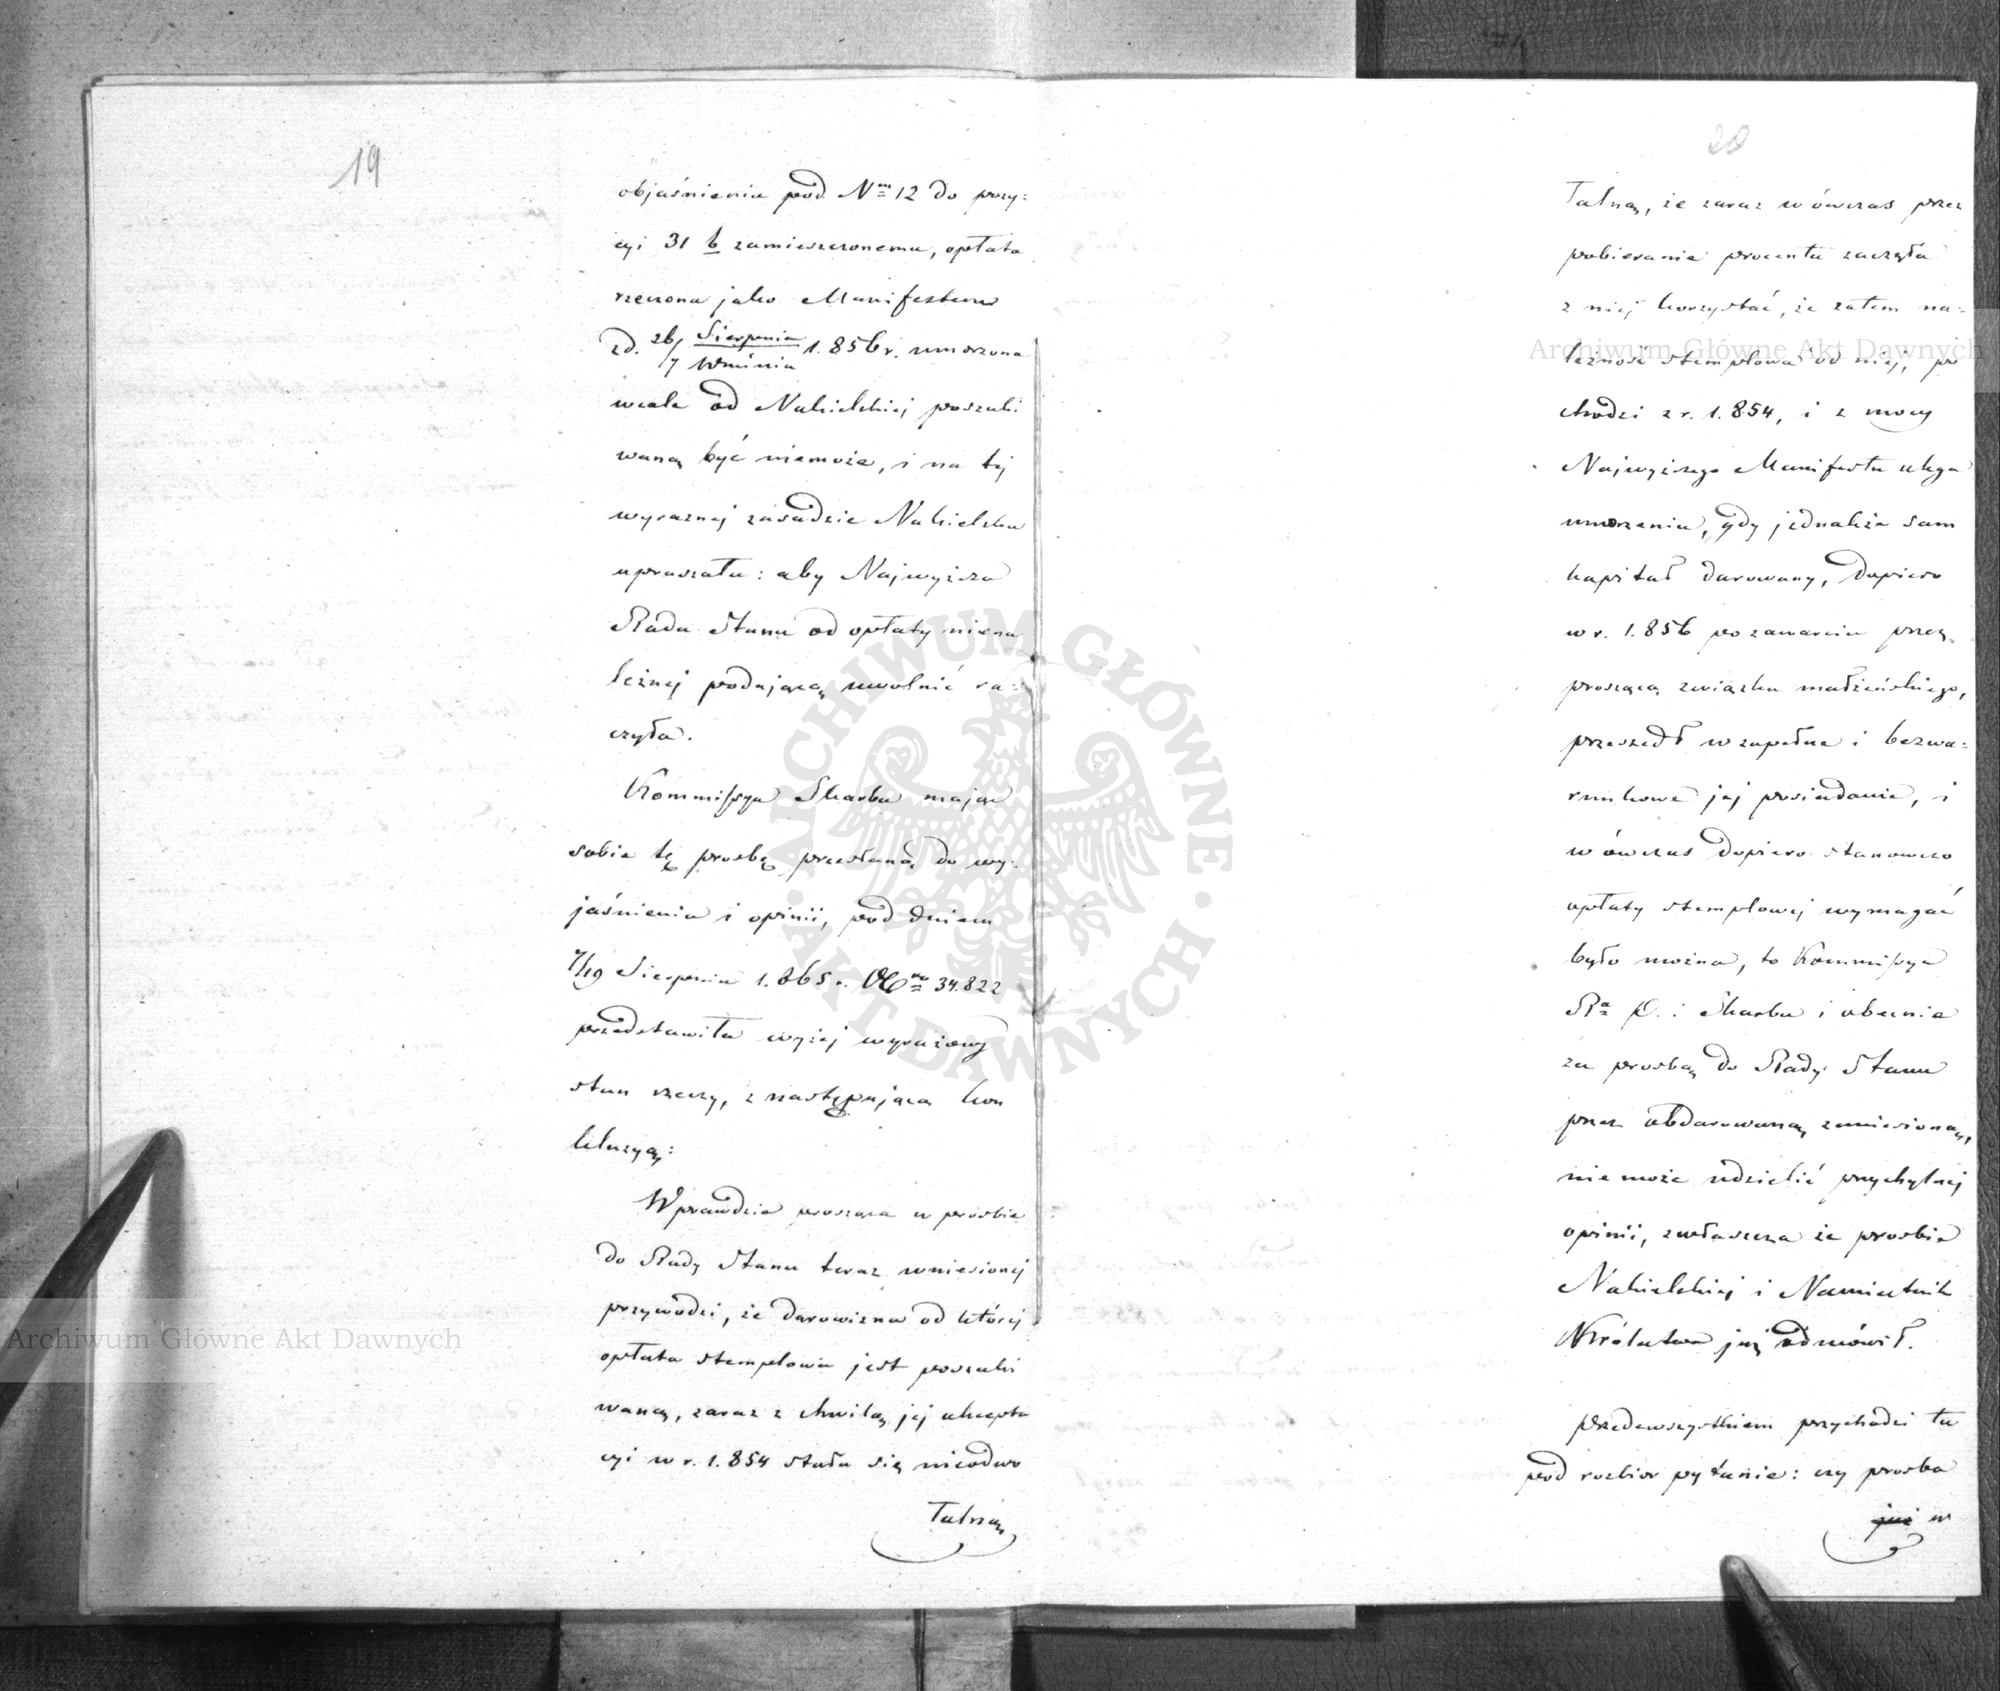 19
objaśnieniu pod Nm 12 do pozy=
cyi 31 b zamieszczonemu, opłata
rzeczona jako Manifestem
zd. 26/7 Sierpnia/Września 1.856 r. umorzona
wcale od Nakielskiej poszuki
waną być niemoże, i na tej
wyraznej zasadzie Nakielska
upraszała: aby Najwyższa
Rada Stanu od opłaty niena
leżnej podającą uwolnić ra=
czyła.
Kommissya Skarbu mając
sobie tę prośbę przesłaną do wy=
jaśnienia i opinii, pod dniem
7/19 Sierpnia 1.865 r. No 34.822
przedstawiła wyżej wyrażony
stan rzeczy, z następującą kon
kluzyą:
Wprawdzie prosząca w prośbie
do Rady Stanu teraz wniesionej
przywodzi, że darowizna od której
opłata stemplowa jest poszuki
waną, zaraz z chwilą jej akcepta
cyi w r. 1.854 stała się nieodwo
łalną
20
łalną, że zaraz wówczas przez
pobieranie procentu zaczęła
z niej korzystać, że zatem na=
leżność stemplowa od niej, po
chodzi z r. 1.854, i z mocy
Najwyższego Manifestu ulega
umorzeniu, gdy jednakże sam
kapitał darowany, dopiero
w r. 1.856 po zawarciu przez
proszącą związku małżeńskiego,
przeszedł w zupełne i bezwa=
runkowe jej posiadanie, i
wówczas dopiero stanowczo
opłaty stemplowej wymagać
było można, to Kommissya
Ra P. i Skarbu i obecnie
za prośbą do Rady Stanu
przez obdarowaną zaniesioną,
nie może udzielić przychylnej
opinii, zwłaszcza że prośbie
Nakielskiej i Namiestnik
Królestwa już odmówił.
Przedewszystkiem przychodzi tu
pod rozbiór pytanie: czy prośba
już w
Archiwum Główne Akt Dawnych
Archiwum Główne Akt Dawnych
ARCHIWUM GŁÓWNE AKT DAWNYCH